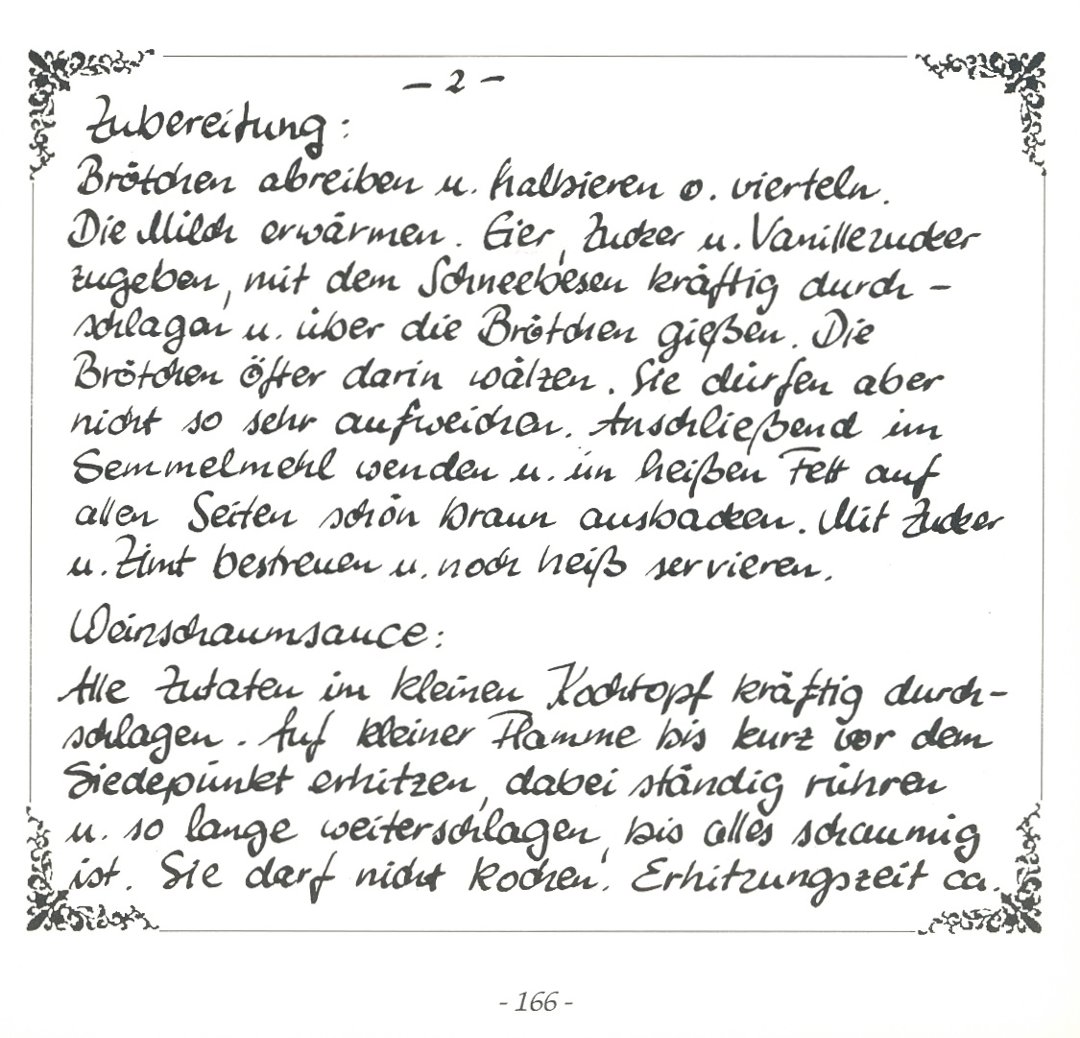 - 2 -
Zubereitung:
Brötchen abreiben u. halbieren o. vierteln.
Die Milch erwärmen. Eier, Zucker u. Vanillezucker
zugeben, mit dem Schneebesen kräftig durch-
schlagen u. über die Brötchen gießen. Die
Brötchen öfter darin wälzen. Sie dürfen aber
nicht so sehr aufweichen. Anschließend im
Semmelmehl wenden u. im heißen Fett auf
allen Seiten schön braun ausbacken. Mit Zucker
u. Zimt bestreuen u. noch heiß servieren.
Weinschaumsauce:
Alle Zutaten im kleinen Kochtopf kräftig durch-
schlagen. Auf kleiner Flamme bis kurz vor dem
Siedepunkt erhitzen, dabei ständig rühren
u. so lange weiterschlagen, bis alles schaumig
ist. Sie darf nicht kochen. Erhitzungszeit ca.
- 166 -